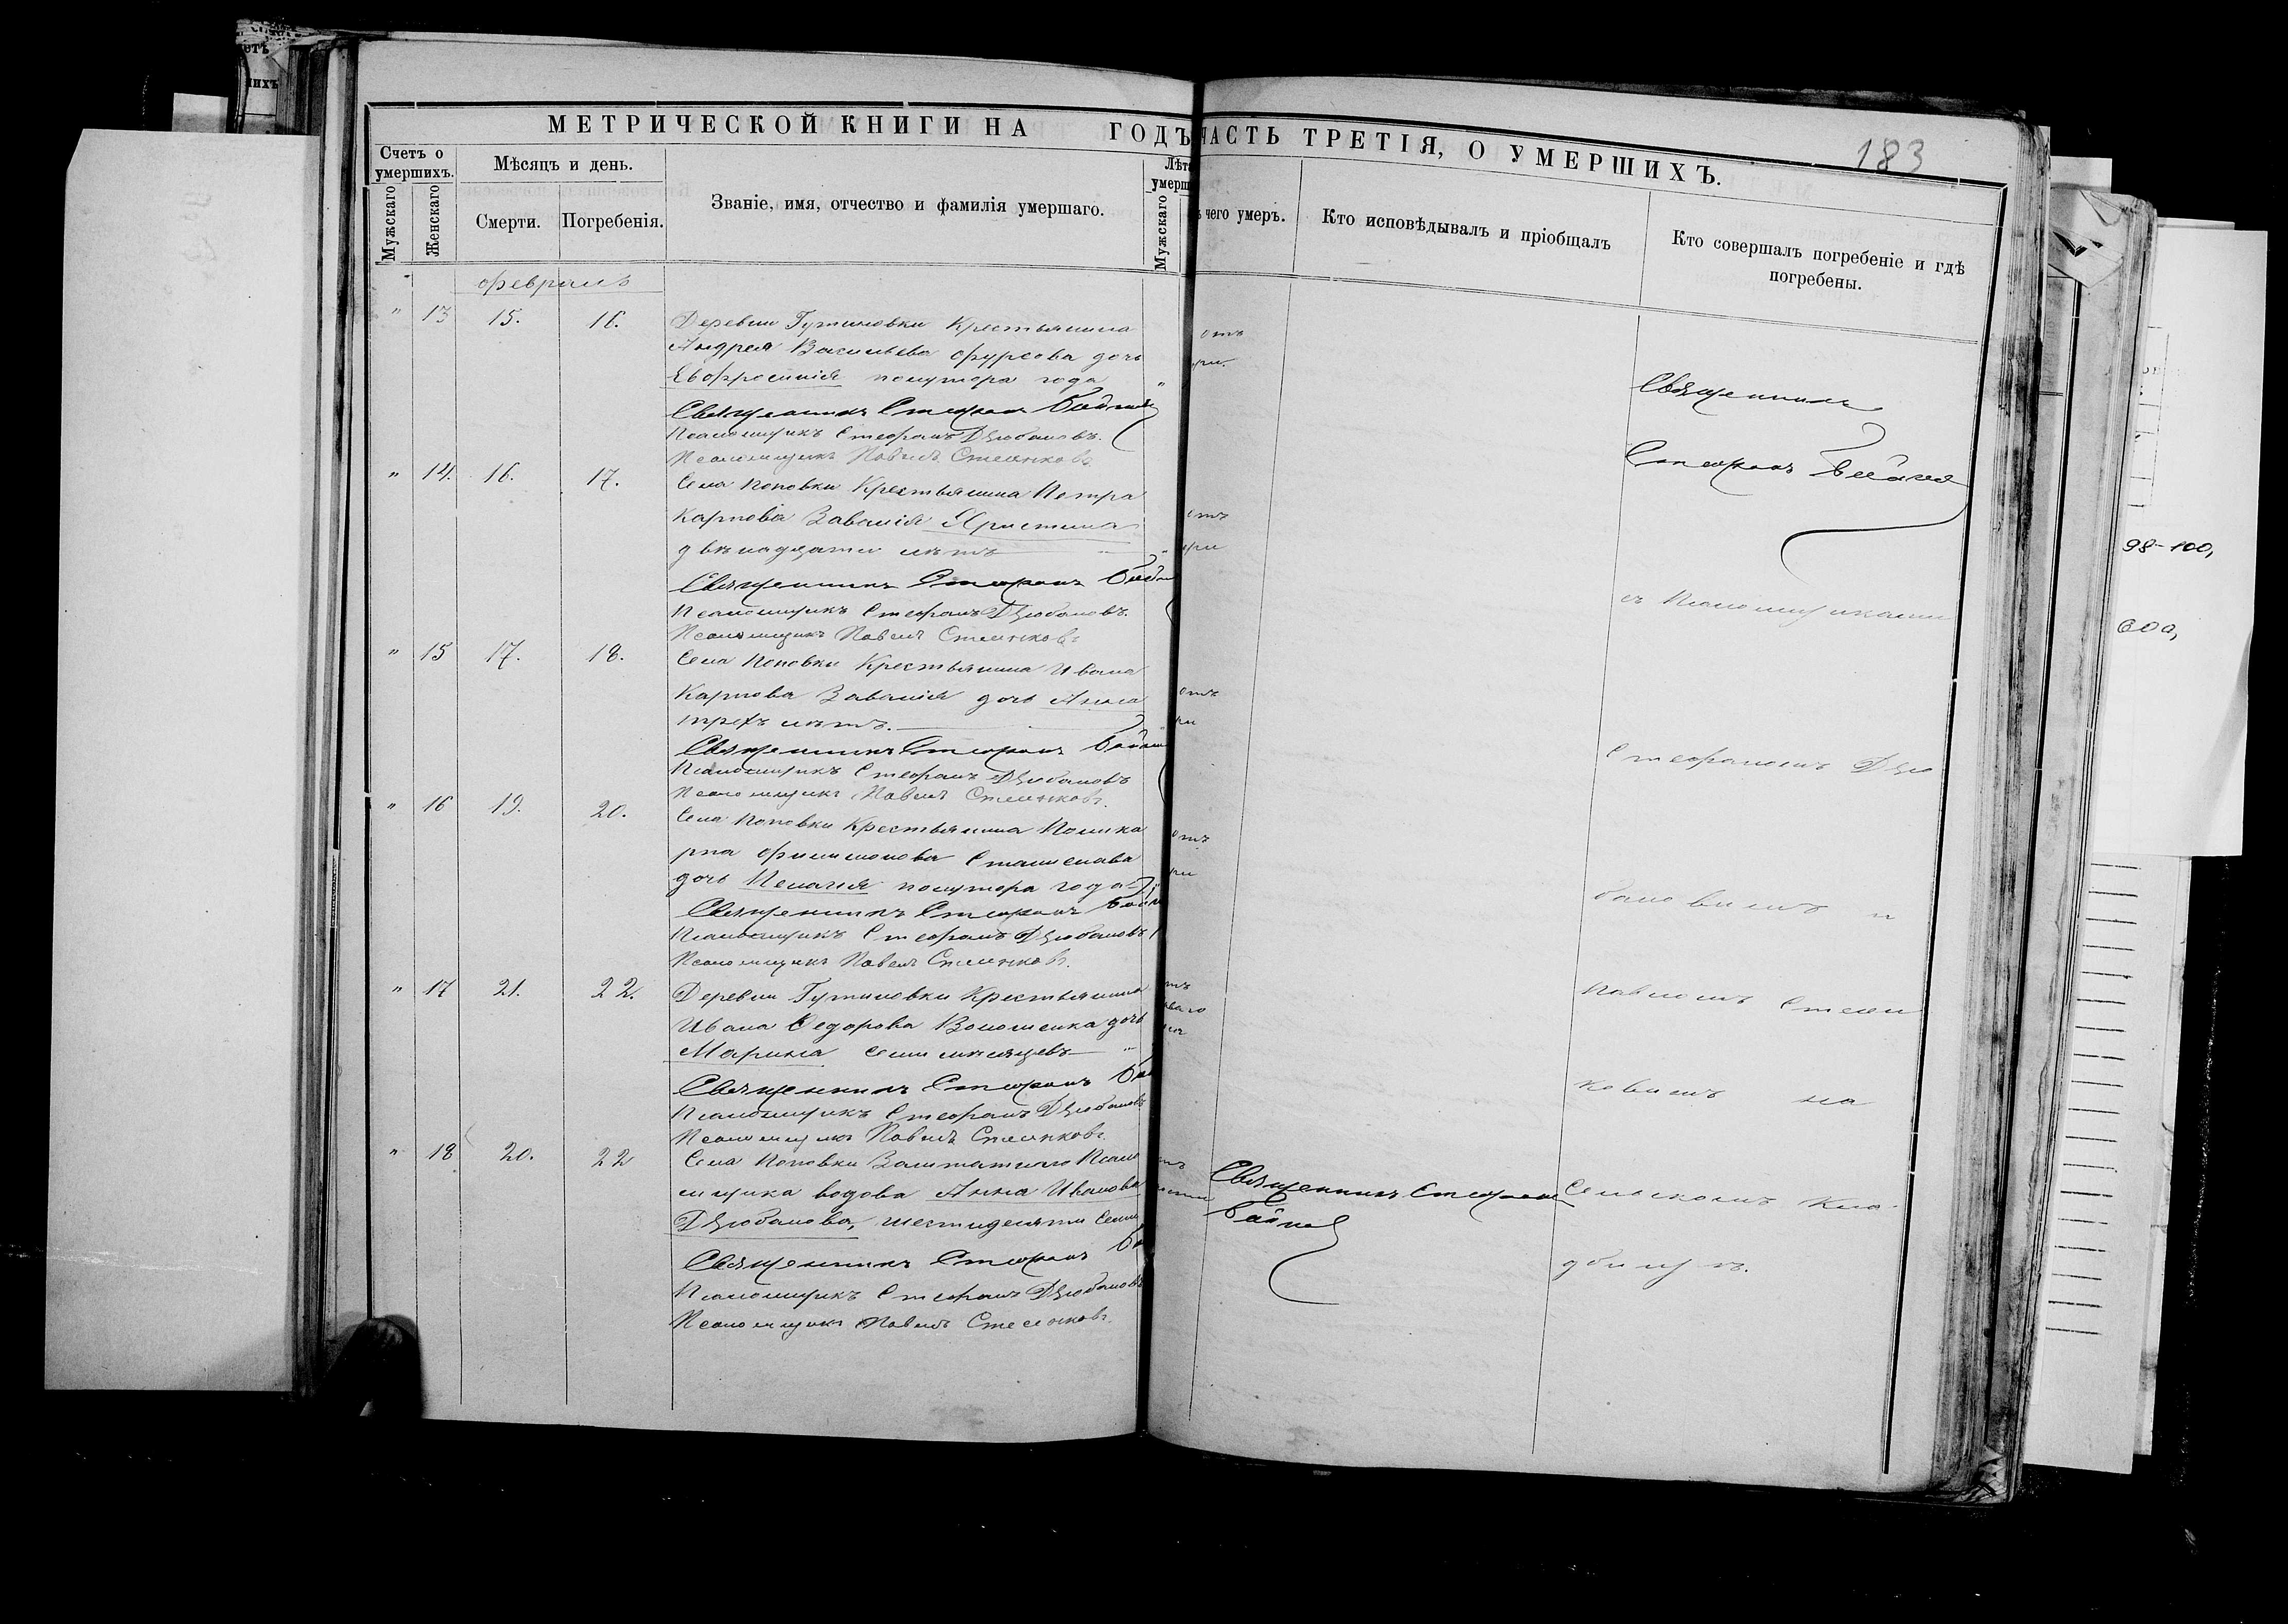 МЕТРИЧЕСКОЙ КНИГИ НА ГОДЪ
Счетъ о умершихъ.
Мужскаго
Женскаго
Мѣсяцъ и день.
Смерти.
Погребенія.
Званіе, имя, отчество и фамилія умершаго.
Мужскаго
февраль
" 13 15. 16.
Деревни Гутиновки Крестьянина
Андрея Васильева Фурсова дочь
Евфросинія полутора года "
Священникъ Стефанъ
Псаломщикъ Стефанъ Дзюбановъ.
Псаломщикъ Павелъ
" 14. 16. 17.
Села Поповки Крестьянина Петра
Карпова Завалія Христина
двѣнадцати лѣтъ "
Священникъ Стефанъ
Псаломщикъ Стефанъ Дзюбановъ.
Псаломщикъ Павелъ
" 15 17. 18.
Села Поповки Крестьянина Ивана
Карпова Завалія дочь Анна
трехъ лѣтъ.
Священникъ Стефанъ
Псаломщикъ Стефанъ Дзюбановъ
Псаломщикъ Павелъ
" 16 19. 20.
Села Поповки Крестьянина Полика
рпа Филимонова Станислава
дочь Пелагія полутора года
Священникъ Стефанъ
Псаломщикъ Стефанъ Дзюбановъ
Псаломщикъ Павелъ
" 17 21. 22.
Деревни Гутиновки Крестьянина
Ивана Федорова Волошенка дочь
Марина семи мѣсяцевъ "
Священникъ Стефанъ
Псаломщикъ Стефанъ Дзюбановъ
Псаломщикъ Павелъ
" 18 20. 22
Села Поповки Заштатнаго Псало
мщика вдова Анна Иванова
Дзюбанова, шестидесяти семи
Священникъ Стефанъ
Псаломщикъ Стефанъ Дзюбановъ
Псаломщикъ Павелъ
ЧАСТЬ ТРЕТІЯ, О УМЕРШИХЪ.
183
чего умеръ.
Кто исповѣдывалъ и пріобщалъ
Кто совершалъ погребеніе и гдѣ
погребены.
отъ
Священникъ
Стефанъ
отъ
съ Псаломщиками
отъ
Стефаномъ Дзю
отъ
бановымъ и
Павломъ
на
Священникъ Стефанъ
Сельскомъ Кла
дбищѣ.
98-100,
600,